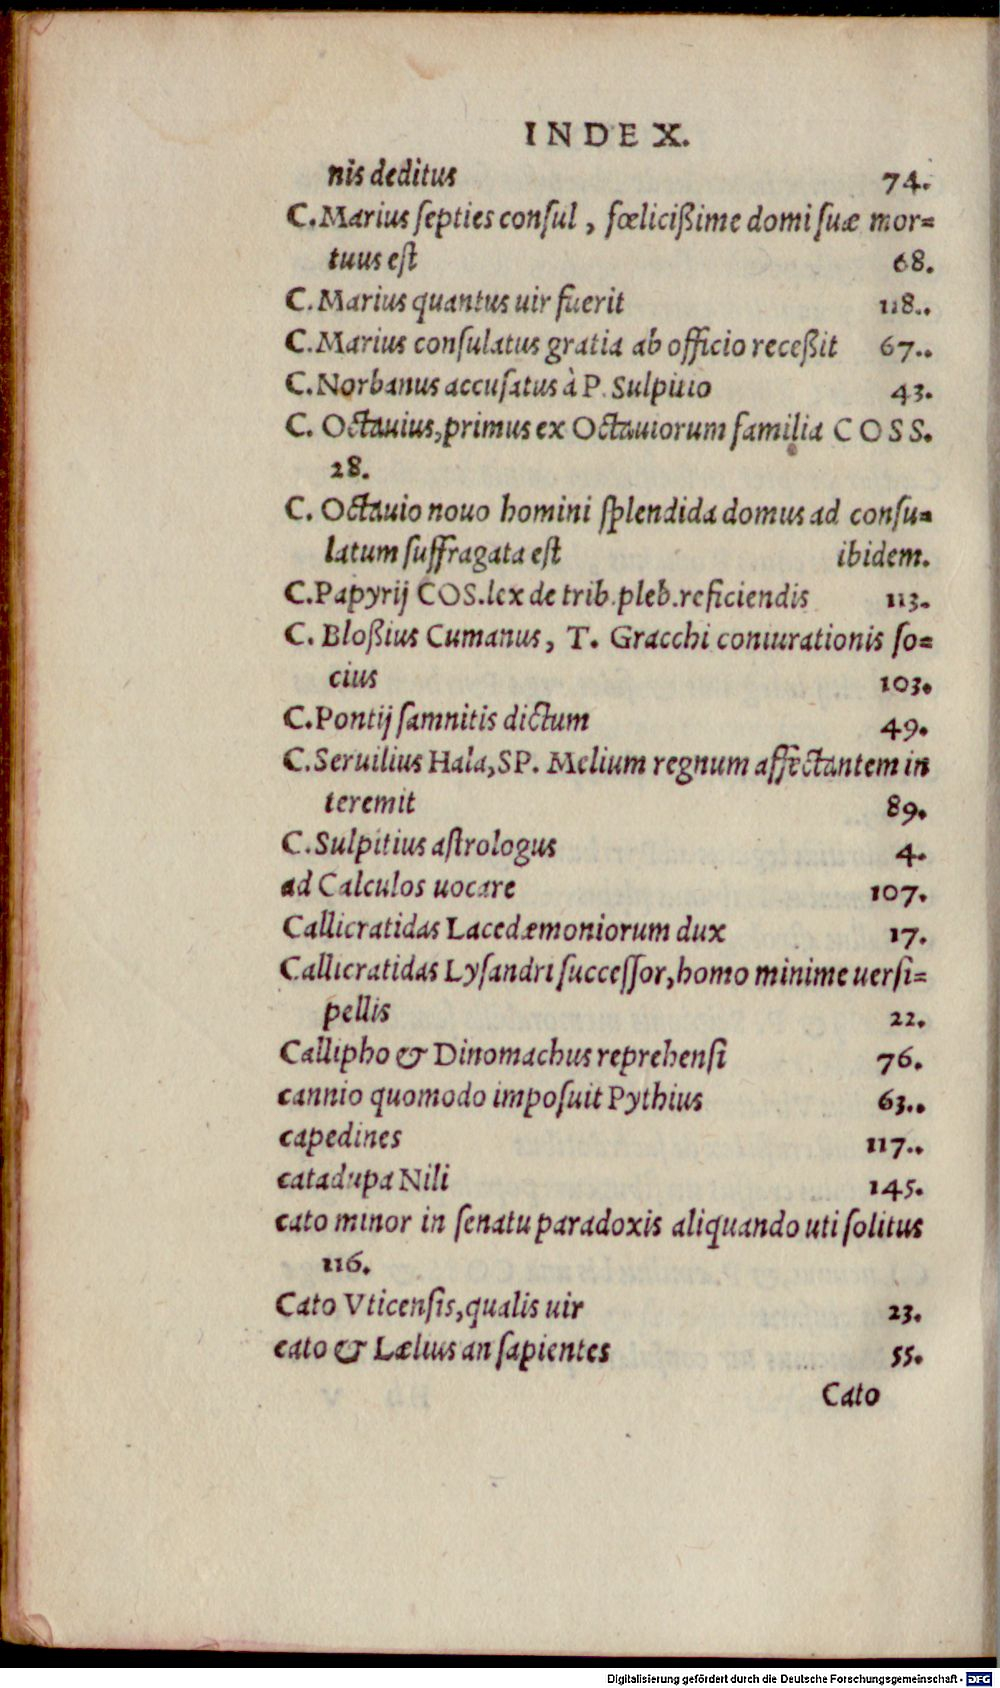 INDEX.
nis deditus 74.
C.Marius ſepties conſul , fœlicißime domi ſuæ mor=
tuus eſt 68.
C.Marius quantus uir fuerit 118..
C.Marius conſulatus gratia ab officio receßit 67..
C.Norbanus accuſatus à P. Sulpitio 43.
C. Octauius,primus ex Octauiorum familia COSS.
28.
C. Octauio nouo homini ſplendida domus ad conſu=
latum ſuffragata eſt ibidem.
C.Papyrij COS.lex de trib.pleb.reficiendis 113.
C. Bloßius Cumanus, T. Gracchi coniurationis ſo=
cius 103.
C.Pontij ſamnitis dictum 49.
C.Seruilius Hala,SP. Melium regnum affectantem in
teremit 89.
C.Sulpitius aſtrologus 4.
ad Calculos uocare 107.
Callicratidas Lacedæmoniorum dux 17.
Callicratidas Lyſandri ſucceſſor,homo minime uerſi=
pellis 22.
Callipho & Dinomachus reprehenſi 76.
cannio quomodo impoſuit Pythius 63..
capedines 117..
catadupa Nili 145.
cato minor in ſenatu paradoxis aliquando uti ſolitus
116.
Cato Vticenſis,qualis uir 23.
cato & Lælius an ſapientes 55.
Cato
Digitalisierung gefördert durch die Deutsche Forschungsgemeinschaft - DFG